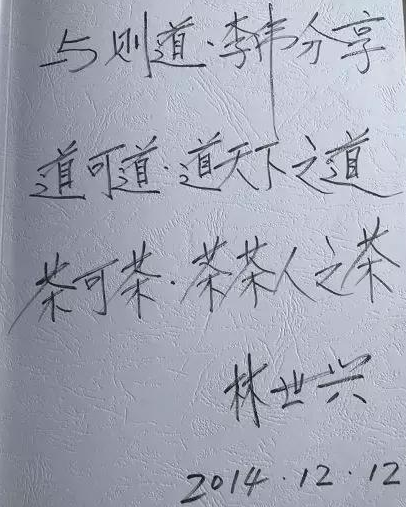 与则道·李伟分享
道可道·道天下之道
茶可茶·茶茶人之茶
林世兴
2014.12.12